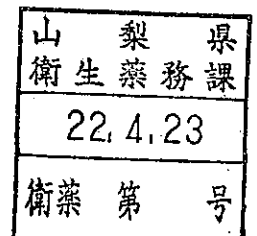 山梨県
衛生薬務課
22.4.23
衛薬第 号